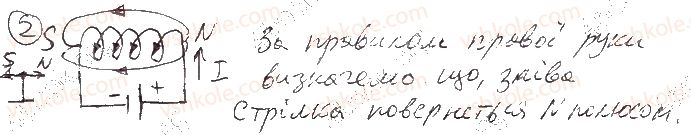 2
S N
S N I
- +
За правилом правої руки
визначемо що, зліва
стрілка повернеться N полюсом.